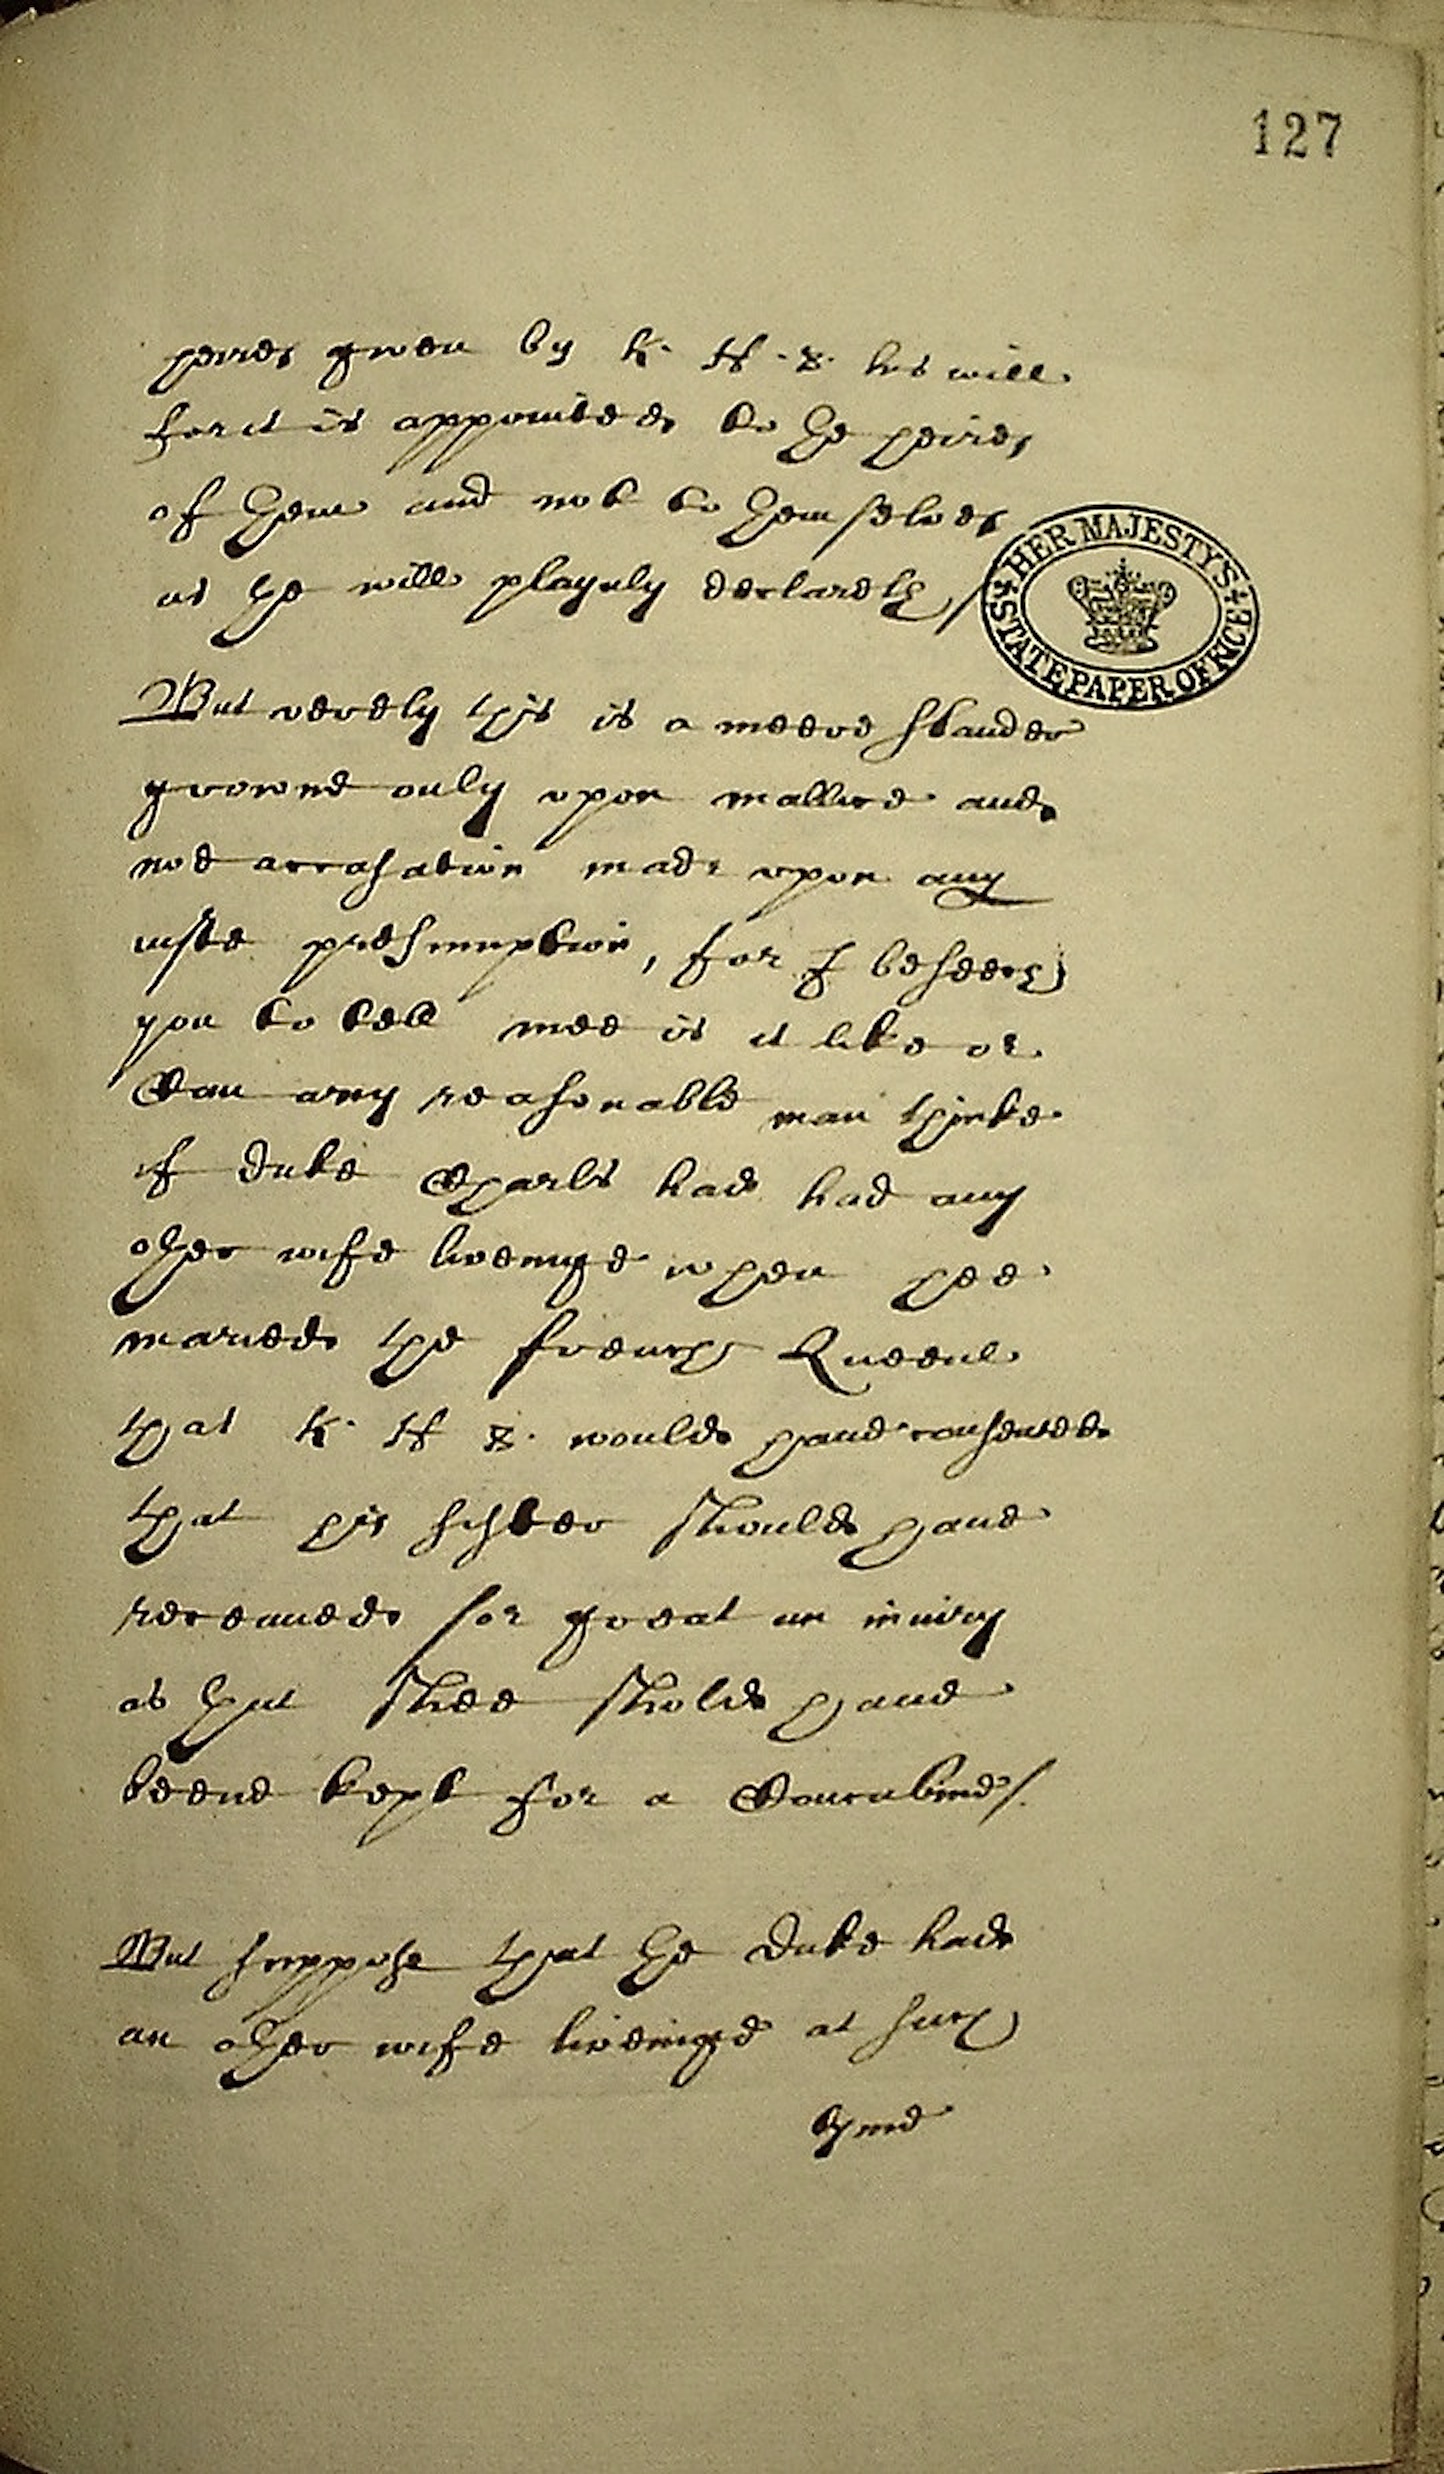 127
heires given by K. H. 8. his will
for it is appointed to the heires
of them and not to themselves
as the will playnly declareth /
HER MAJESTY'S STATE PAPER OFFICE
But verely this is a meere slander
grownd only upon mallice and
noe accusation made upon any
iuste presumption, for I beseech
you to tell mee is it like or
Can any reasonable man thinke
if Duke Charls had had any
other wife liveinge when hee
maried the french Queene
that K. H 8. would have consented
that his sister should have
receaued so great an iniury
as that shee shold have
beene kept for a Concubine /.
But suppose that the Duke had
an other wife liveinge at such
tyme